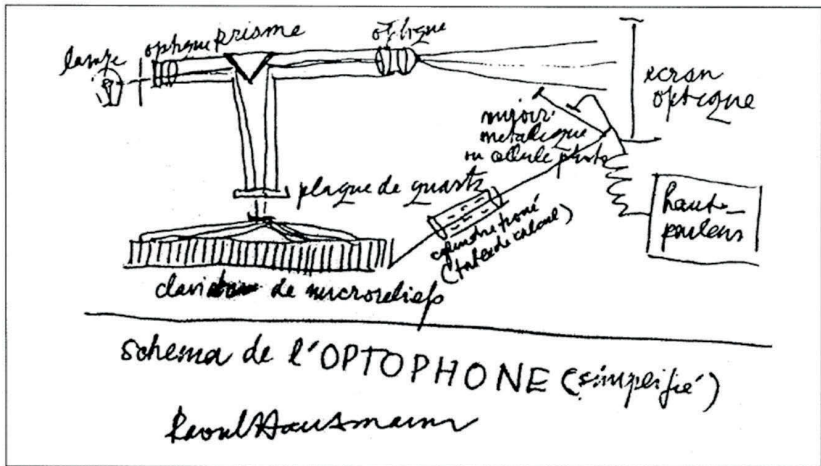 lampe
optique
prisme
optique
écran
optique
miroir
métallique
ou cellule photo
plaque de quartz
haut-
parleurs
cylindre troué
(table de calcul)
de microreliefs
schema de l'OPTOPHONE (simplifié)
Raoul Hausmann